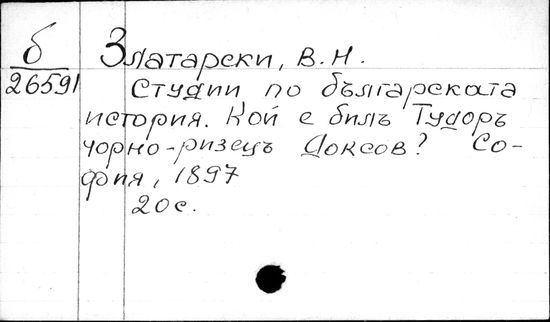 б
26591
Златарски, В.Н.
Студии по българската
история. Кой е билъ Тудоръ
чорно-ризецъ Доксов? Со-
фия, 1897
20с.